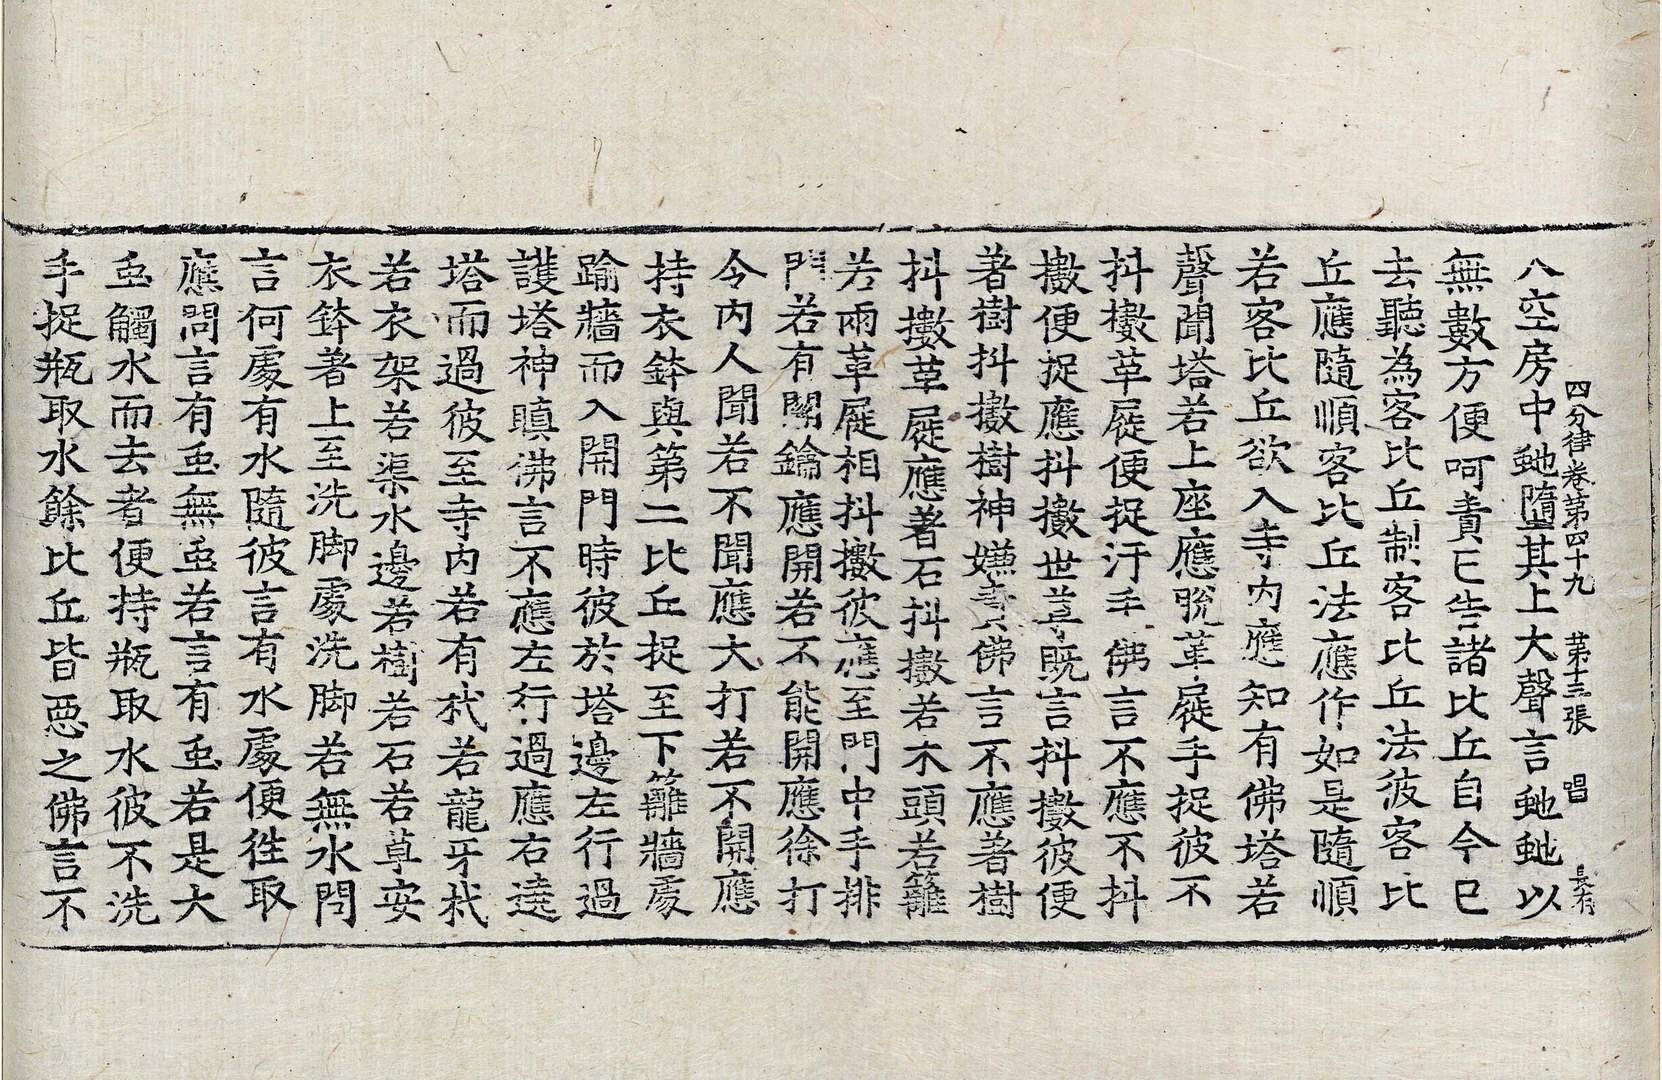 四分律卷第四十九 第十三張 唱
八空房中虵隨其上大聲言虵虵以
無數方便呵責已告諸比丘自今已
去聽為客比丘制客比丘法彼客比
丘應隨順客比丘法應作如是隨順
若客比丘欲入寺內應知有佛塔若
聲聞塔若上座應脫革屣手捉彼不
抖擻革屣便捉汙手佛言不應不抖
擻便捉應抖擻世尊既言抖擻彼便
著樹抖擻樹神嫌責佛言不應著樹
抖擻革屣應著石抖擻若木頭若籬
若兩革屣相抖擻彼應至門中手排
門若有關鑰應開若不能開應徐打
令內人聞若不聞應大打若不開應
持衣鉢與第二比丘捉至下籬牆處
踰牆而入開門時彼於塔邊左行過
護塔神瞋佛言不應左行過應右遶
塔而過彼至寺內若有杙若龍牙杙
若衣架若渠水邊若樹若石若草安
衣鉢著上至洗脚處洗脚若無水問
言何處有水隨彼言有水處便往取
應問言有虫無虫若言有虫若是大
虫觸水而去者便持瓶取水彼不洗
手捉瓶取水餘比丘皆惡之佛言不